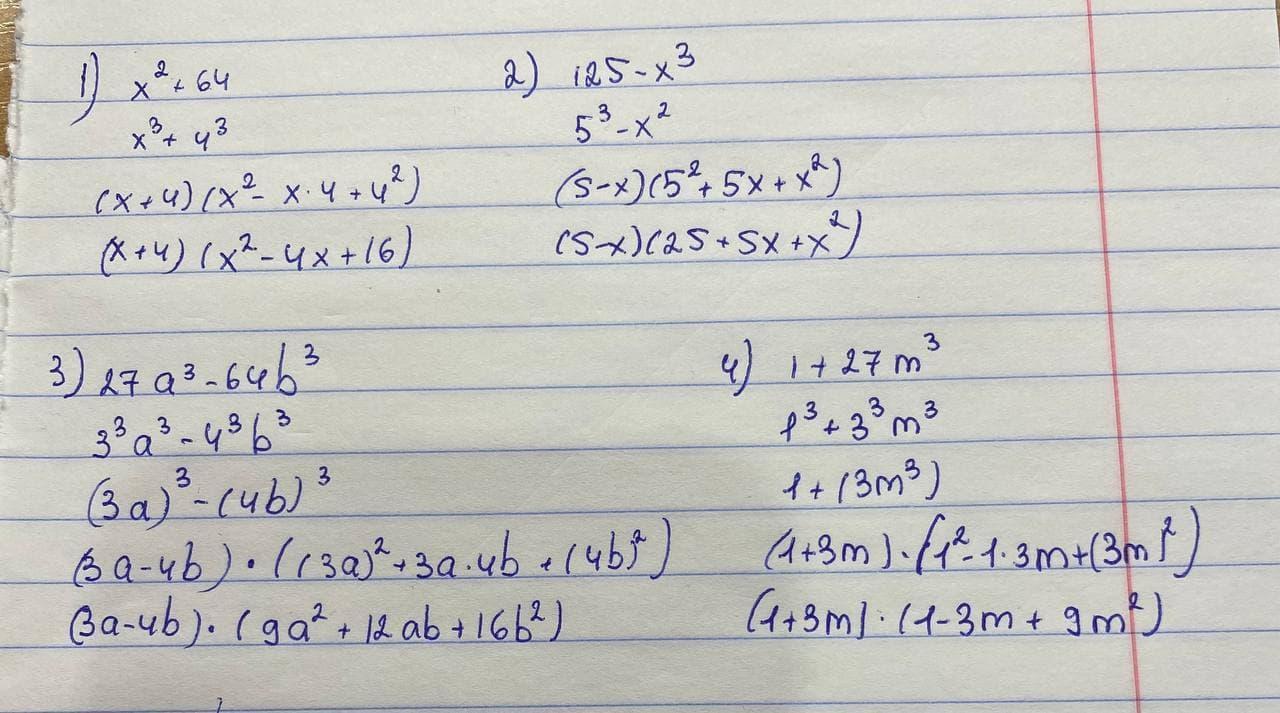 1) x² + 64
x³ + 4³
(x + 4) (x² - x · 4 + 4²)
(x + 4) (x² - 4x + 16)
2) 125 - x³
5³ - x²
(5 - x)(5² + 5x + x²)
(5 - x)(25 + 5x + x²)
3) 27a³ - 64b³
3³a³ - 4³b³
(3a)³ - (4b)³
(3a - 4b) · ((3a)² + 3a · 4b + (4b)²)
(3a - 4b) · (9a² + 12ab + 16b²)
4) 1 + 27m³
1³ + 3³m³
1 + (3m³)
(1 + 3m) · (1² - 1 · 3m + (3m)²)
(1 + 3m) · (1 - 3m + 9m²)